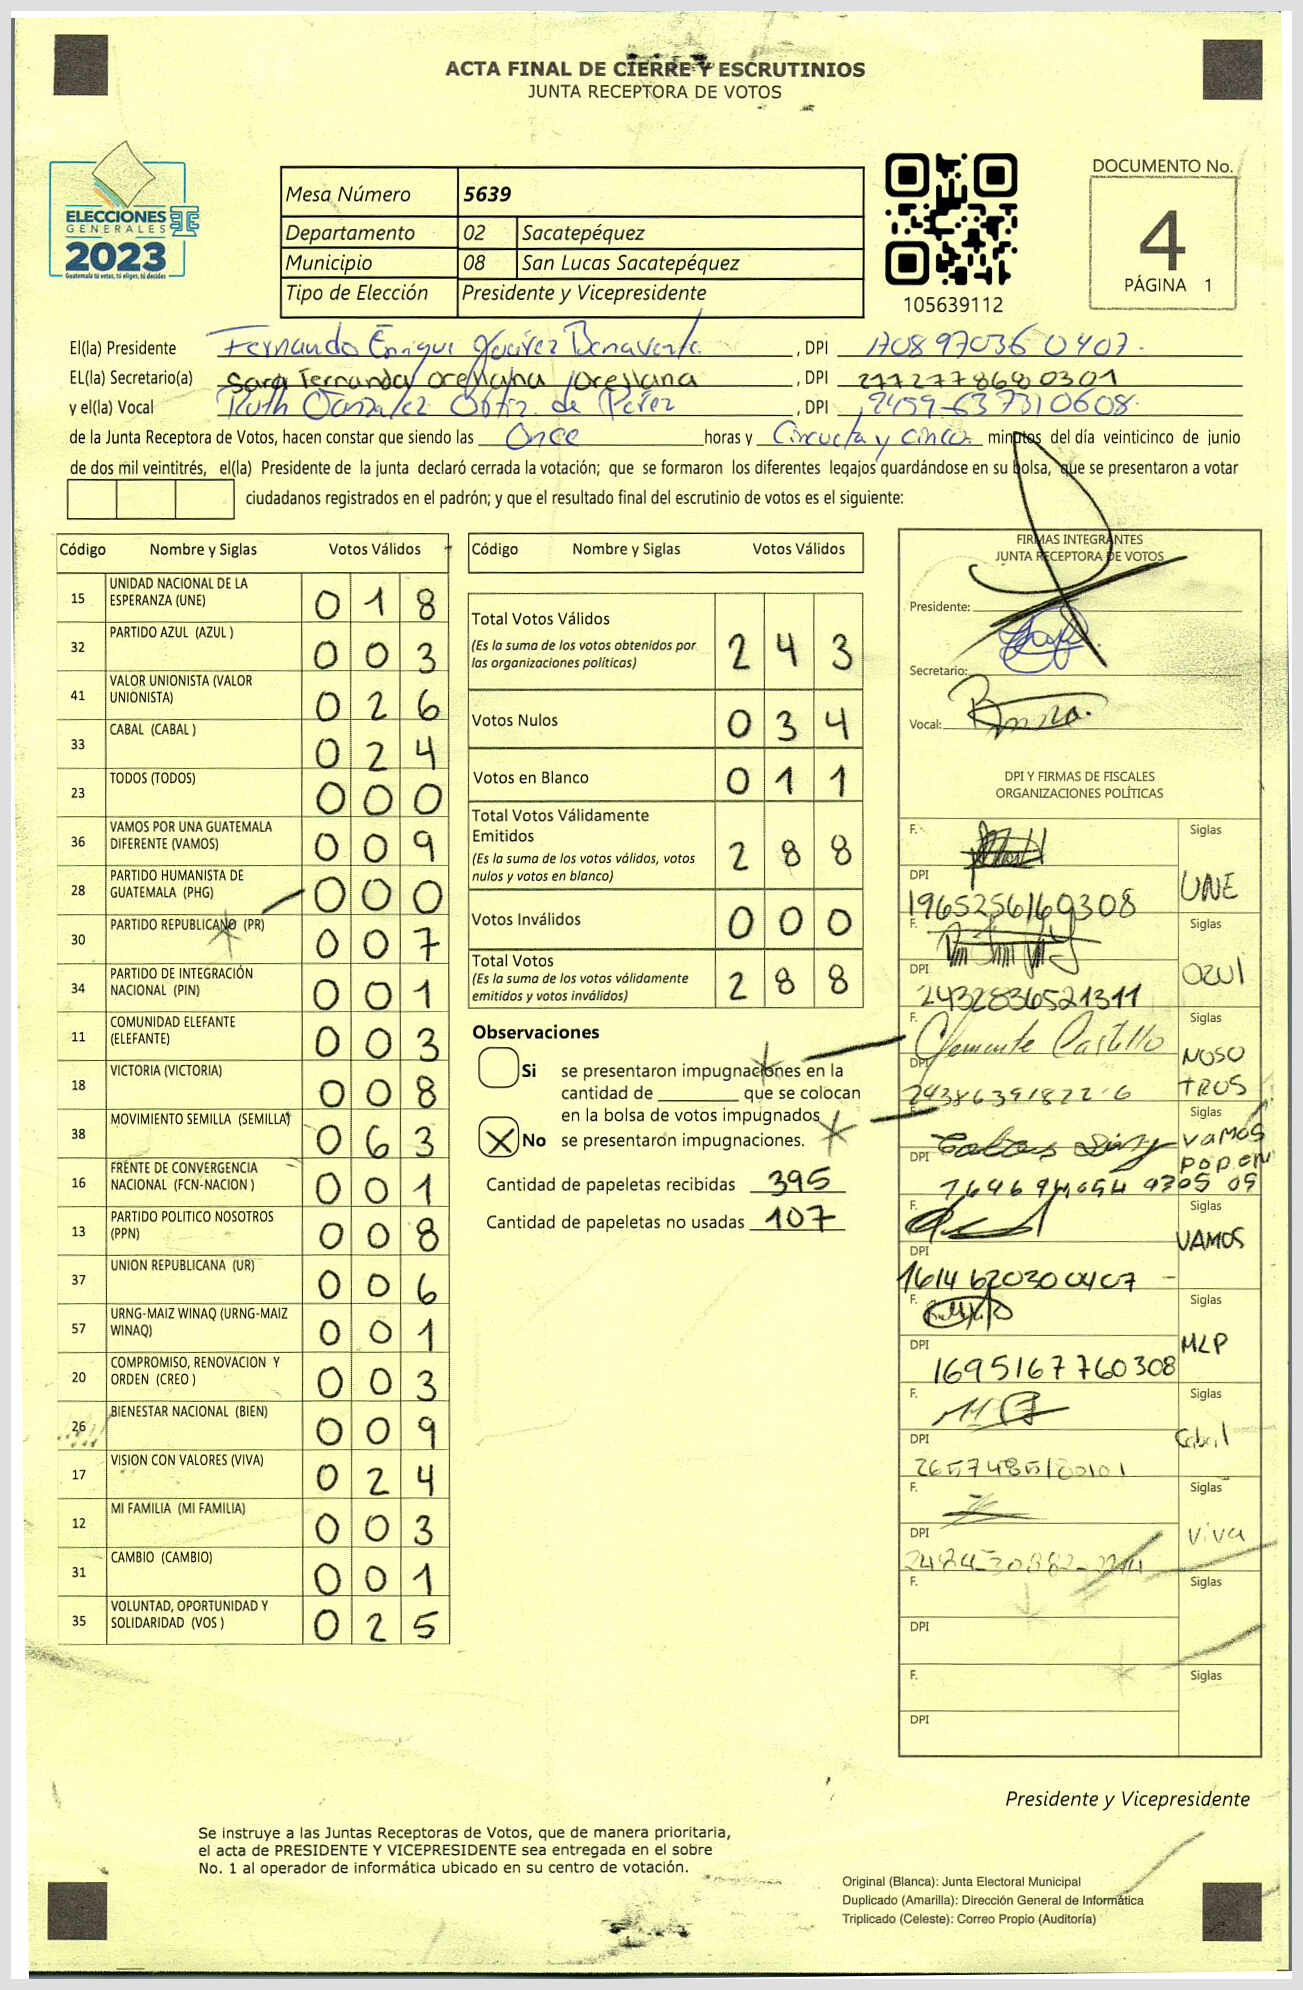 ACTA FINAL DE CIERRE Y ESCRUTINIOS
JUNTA RECEPTORA DE VOTOS
ELECCIONES
GENERALES
2023
Guatemala tú votas, tú eliges, tú decides
Mesa Número 5639
Departamento 02 Sacatepéquez
Municipio 08 San Lucas Sacatepéquez
Tipo de Elección Presidente y Vicepresidente
105639112
DOCUMENTO No.
4
PÁGINA 1
El(la) Presidente Fernando Enrique Juárez Benavente, DPI
EL(la) Secretario(a) Sara Fernanda Orellana Orellana, DPI 2772778680301
y el(la) Vocal Ruth González Ortiz de Pérez, DPI
de la Junta Receptora de Votos, hacen constar que siendo las Once horas y Cincuenta y cinco minutos del día veinticinco de junio
de dos mil veintitrés, el(la) Presidente de la junta declaró cerrada la votación; que se formaron los diferentes legajos guardándose en su bolsa, que se presentaron a votar
ciudadanos registrados en el padrón; y que el resultado final del escrutinio de votos es el siguiente:
Código Nombre y Siglas Votos Válidos
15 UNIDAD NACIONAL DE LA ESPERANZA (UNE) 0 1 8
32 PARTIDO AZUL (AZUL ) 0 0 3
41 VALOR UNIONISTA (VALOR UNIONISTA) 0 2 6
33 CABAL (CABAL ) 0 2 4
23 TODOS (TODOS) 0 0 0
36 VAMOS POR UNA GUATEMALA DIFERENTE (VAMOS) 0 0 9
28 PARTIDO HUMANISTA DE GUATEMALA (PHG) 0 0 0
30 PARTIDO REPUBLICANO (PR) 0 0 7
34 PARTIDO DE INTEGRACIÓN NACIONAL (PIN) 0 0 1
11 COMUNIDAD ELEFANTE (ELEFANTE) 0 0 3
18 VICTORIA (VICTORIA) 0 0 8
38 MOVIMIENTO SEMILLA (SEMILLA) 0 6 3
16 FRENTE DE CONVERGENCIA NACIONAL (FCN-NACION ) 0 0 1
13 PARTIDO POLITICO NOSOTROS (PPN) 0 0 8
37 UNION REPUBLICANA (UR) 0 0 6
57 URNG-MAIZ WINAQ (URNG-MAIZ WINAQ) 0 0 1
20 COMPROMISO, RENOVACION Y ORDEN (CREO ) 0 0 3
26 BIENESTAR NACIONAL (BIEN) 0 0 9
17 VISION CON VALORES (VIVA) 0 2 4
12 MI FAMILIA (MI FAMILIA) 0 0 3
31 CAMBIO (CAMBIO) 0 0 1
35 VOLUNTAD, OPORTUNIDAD Y SOLIDARIDAD (VOS ) 0 2 5
Código Nombre y Siglas Votos Válidos
Total Votos Válidos 2 4 3
(Es la suma de los votos obtenidos por
las organizaciones políticas)
Votos Nulos 0 3 4
Votos en Blanco 0 1 1
Total Votos Válidamente
Emitidos 2 8 8
(Es la suma de los votos válidos, votos
nulos y votos en blanco)
Votos Inválidos 0 0 0
Total Votos 2 8 8
(Es la suma de los votos válidamente
emitidos y votos inválidos)
Observaciones
Si se presentaron impugnaciones en la
cantidad de ________ que se colocan
en la bolsa de votos impugnados
X No se presentaron impugnaciones.
Cantidad de papeletas recibidas 395
Cantidad de papeletas no usadas 107
FIRMAS INTEGRANTES
JUNTA RECEPTORA DE VOTOS
Presidente:
Secretario:
Vocal:
DPI Y FIRMAS DE FISCALES
ORGANIZACIONES POLÍTICAS
F. Siglas
DPI 1965256160308 UNE
F. Siglas
DPI 2432836521311 Azul
F. Clemente Castillo Siglas
DPI NOSOTROS
F. Siglas
DPI Vamos
F. Siglas
DPI 1614620300407 VAMOS
F. Siglas
DPI 1695167760308 MLP
F. Siglas
DPI 2657485180101 Cabal
F. Siglas
DPI Viva
F. Siglas
DPI
F. Siglas
DPI
Presidente y Vicepresidente
Se instruye a las Juntas Receptoras de Votos, que de manera prioritaria,
el acta de PRESIDENTE Y VICEPRESIDENTE sea entregada en el sobre
No. 1 al operador de informática ubicado en su centro de votación.
Original (Blanca): Junta Electoral Municipal
Duplicado (Amarilla): Dirección General de Informática
Triplicado (Celeste): Correo Propio (Auditoría)